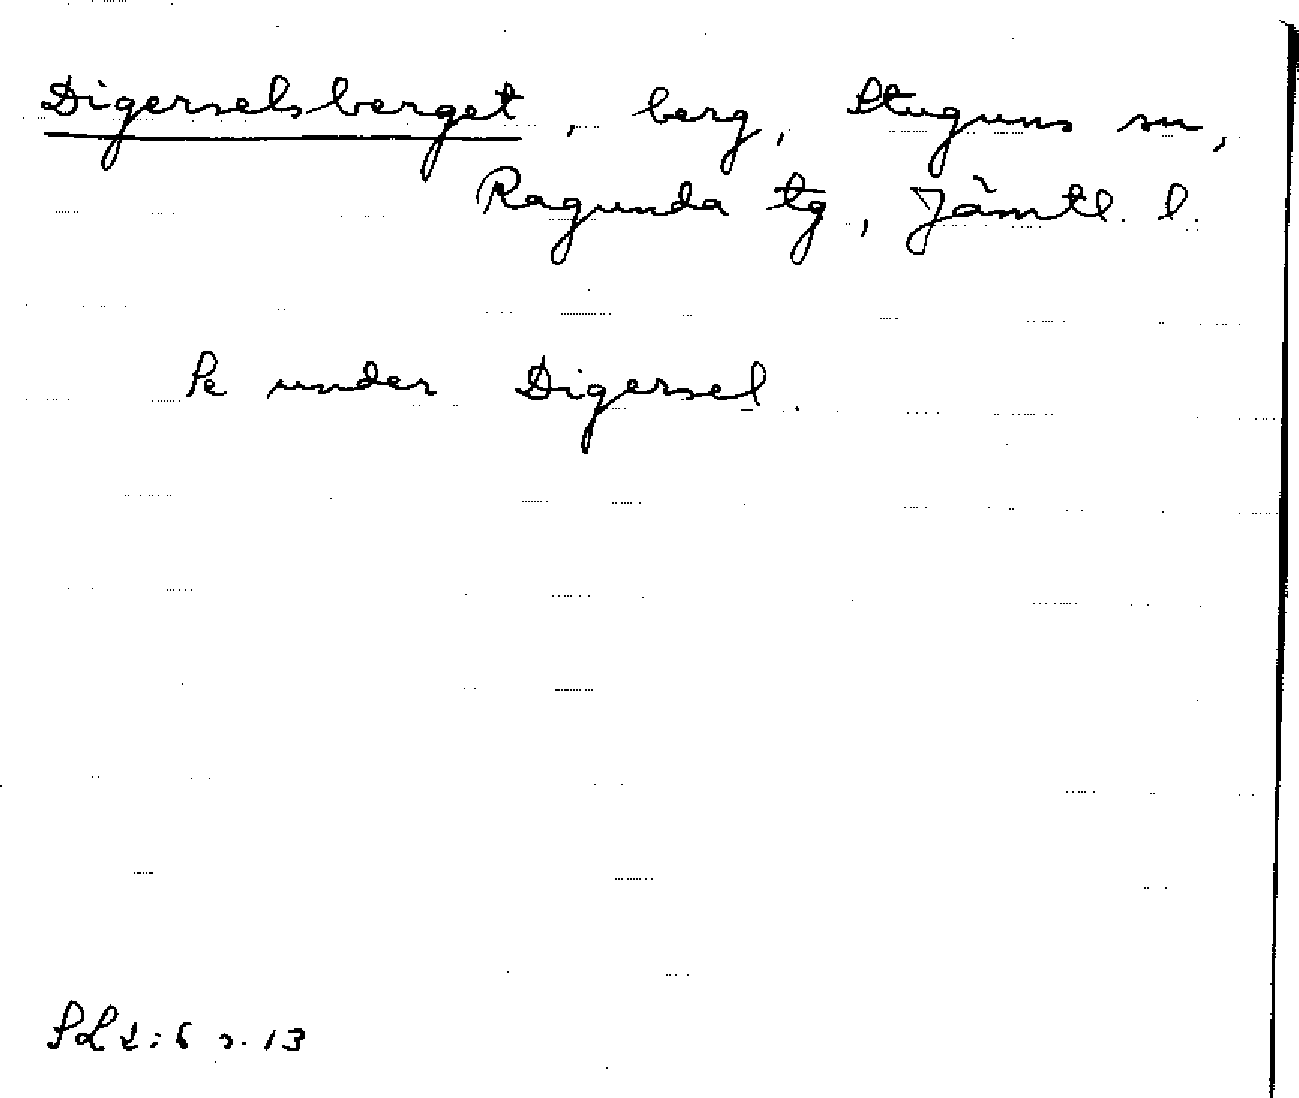 Digerselsberget, berg, Stuguns sn,
Ragunda tg, Jämtl. l.
Se under Digersel.
SOL 2:6 s. 13